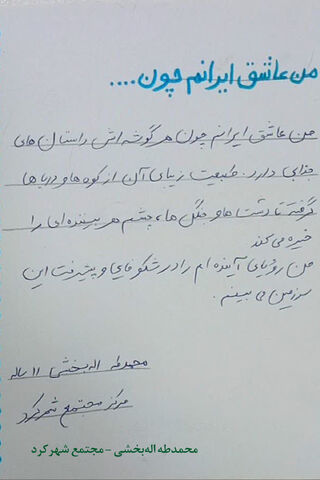 من عاشق ایرانم چون ....
من عاشق ایرانم چون هر گوشه اش داستان های
جذابی دارد. طبیعت زیبای آن از کوه ها و دریا ها
گرفته تا دشت ها و جنگل ها، چشم هر بیننده ای را
خیره می کند
من رؤیای آینده ام را در شکوفایی و پیشرفت این
سرزمین می بینم.
محمدطه اله بخشی ۱۱ ساله
مرکز مجتمع شهرکرد
محمدطه اله‌بخشی - مجتمع شهرکرد